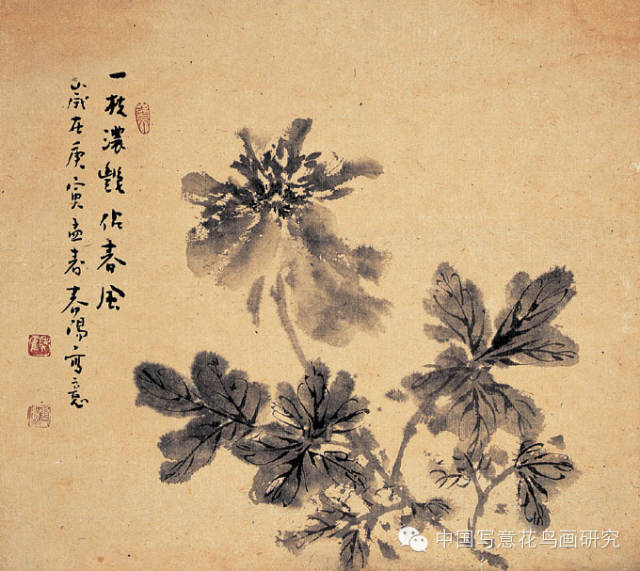 一枝濃艷佔春風
歲在庚寅孟春春陽寫意
中国写意花鸟画研究